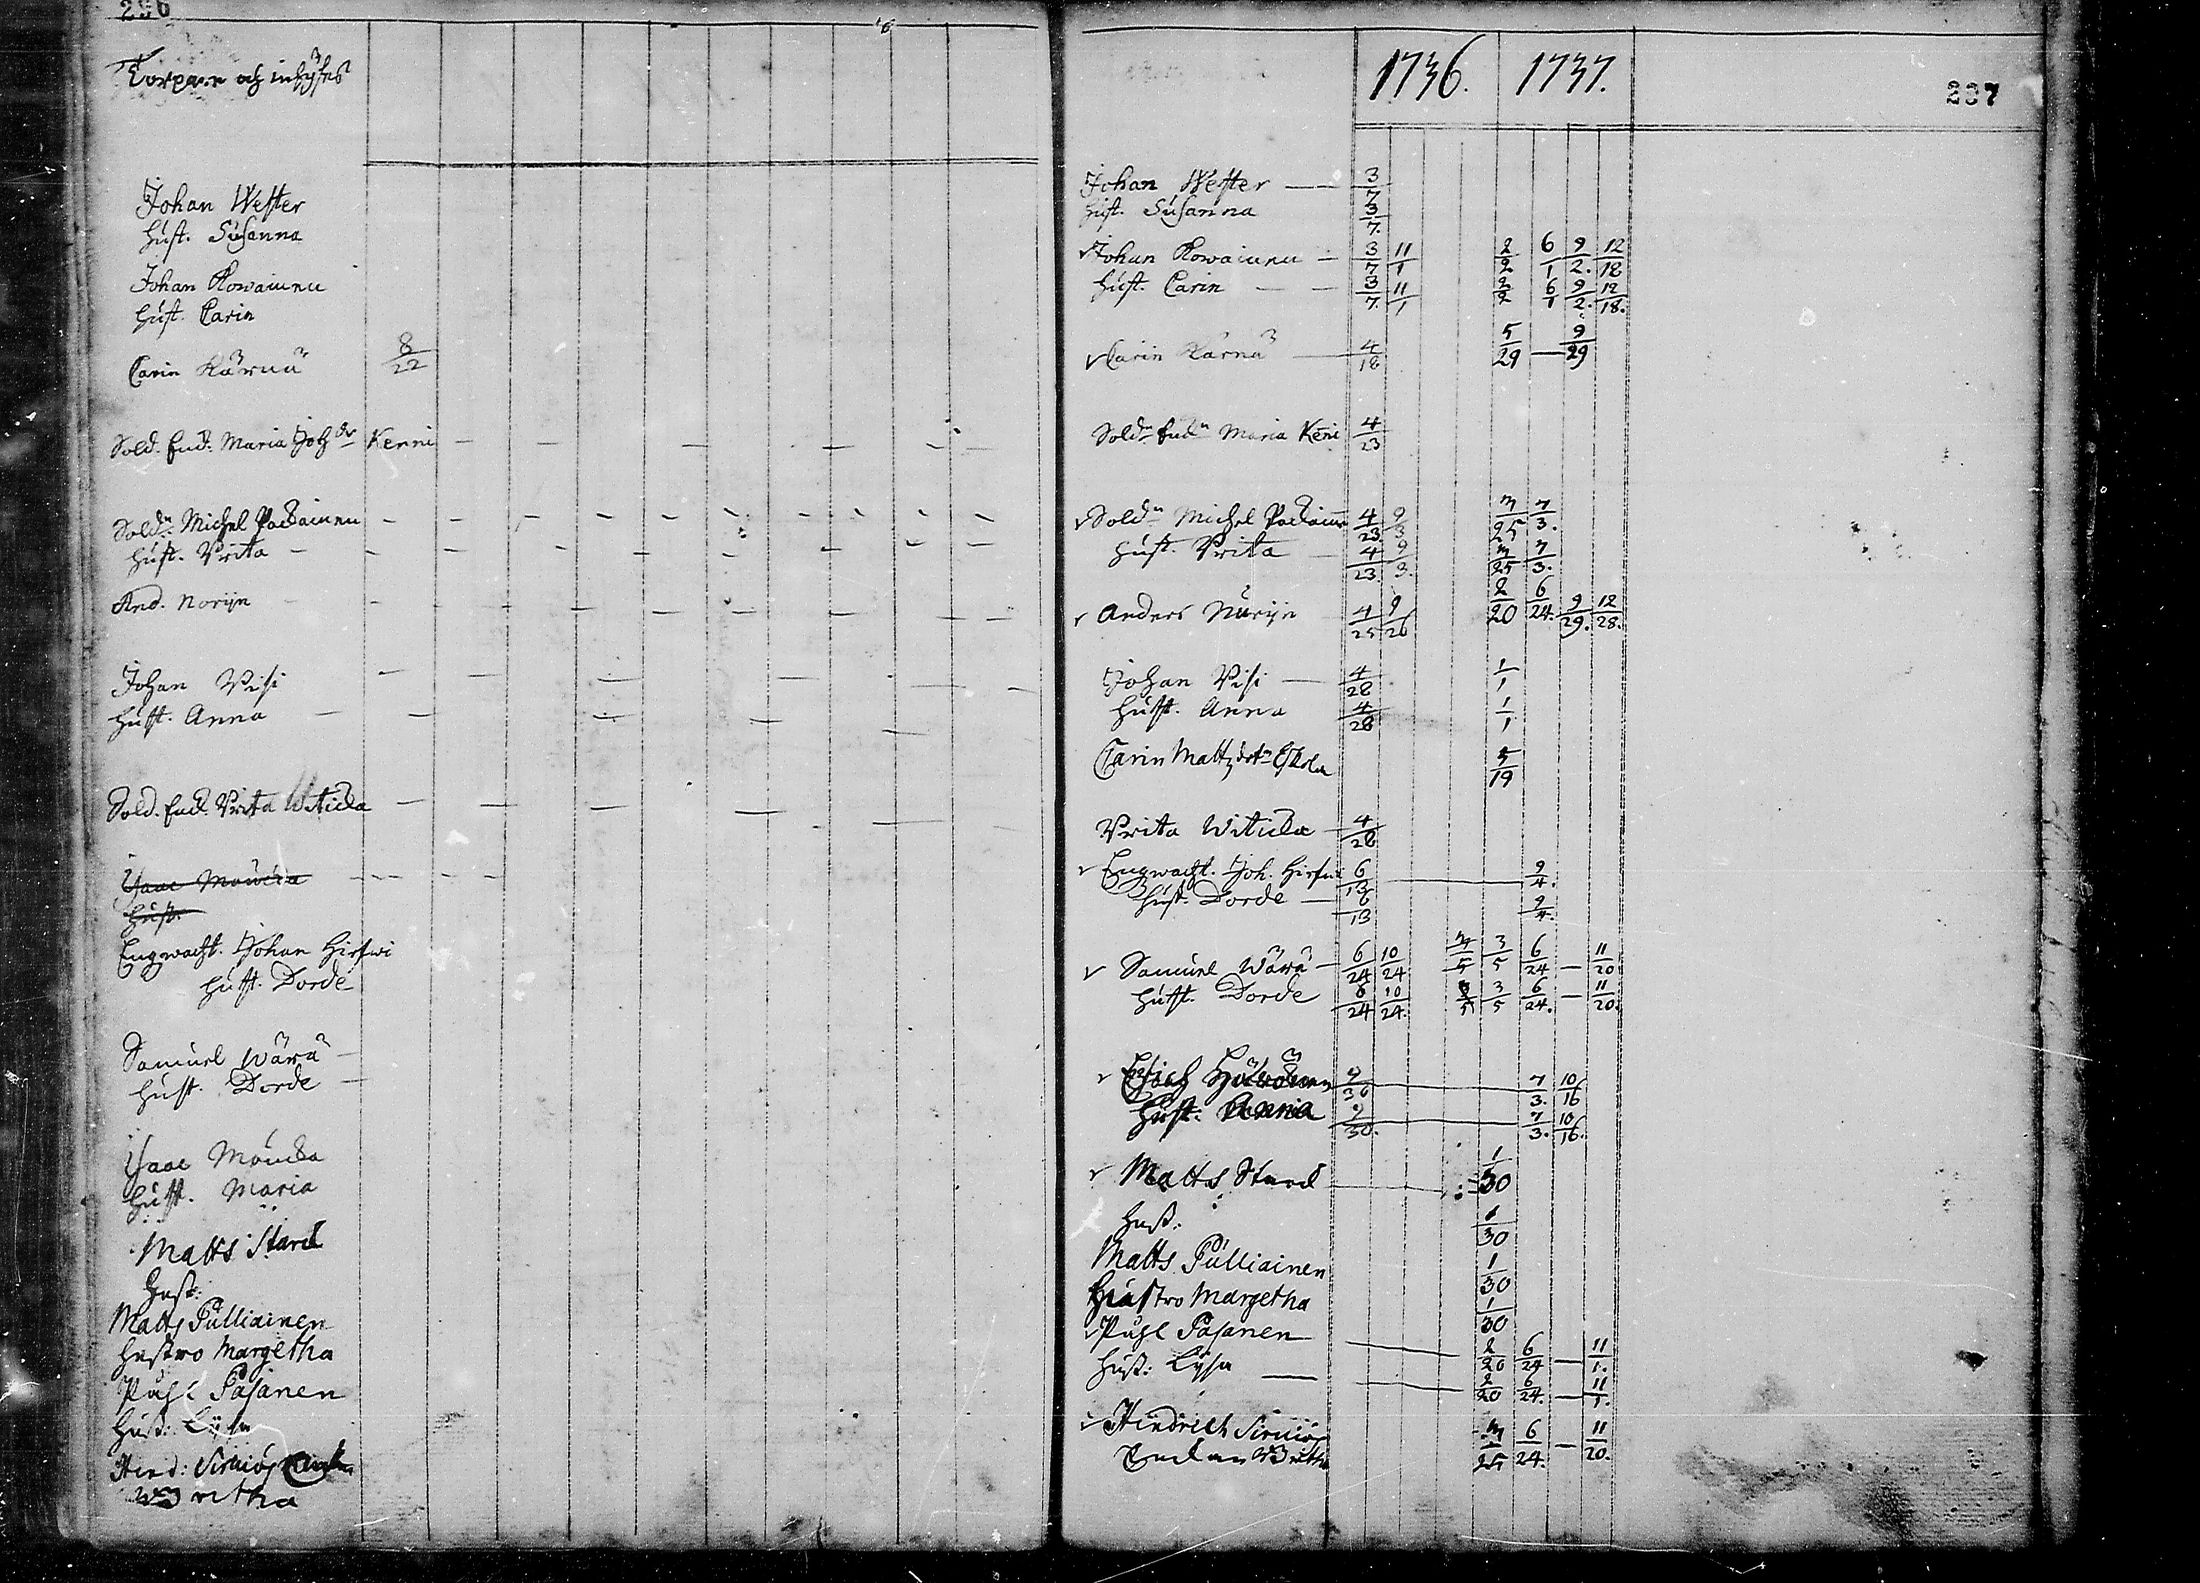 296
Torpare och inhyses
Johan Wester
Hust. Susanna
Johan Kowainen
Hust. Carin
Carin Kärnä 8/22
Sold. Enck. Maria Joh dr Kenni
Sold n Michel Packainen
Hust. Brita
And. Norijn
Johan Visi
Hust. Anna
Sold. Enck. Brita Witicka
Isaac Mönckä
Hust.
Engwacht. Johan Hirfwi
Hust. Dorde
Samuel Wärä
Hust. Dorde
Isaac Möncka
Hust. Maria
Matts Starck
Hust:
Matts Pulliainen
Hustro Margetha
Påhl Pasanen
Hust: Lijsa
Hind: Sirniös Enckia
Britha
1736. 1737.
297
Johan Wester 3/7
Hust. Susanna 3/7.
Johan Kowainen 3/7 11/1 2/2 6/1 9/2. 12/18
Hust. Carin 3/7. 11/1 2/2 6/1 9/2. 12/18.
Carin Kärnä 4/18 5/29 9/29
Sold n Enck n Maria Keni 4/23
Sold n Michel Packain 4/23 9/3 3/25 7/3.
Hust. Brita 4/23. 9/3. 3/25 7/3.
Anders Nurijn 4/25 9/26 2/20 6/24. 9/29. 12/28.
Johan Visi 4/28 1/1
Hust. Anna 4/28 1/1
Carin Matts dott n Eskola 5/19
Brita Witicka 4/28
Engwacht. Joh. Hirfwi 6/13 9/4.
Hust. Dorde 6/13 9/4.
Samuel Wärä 6/24 10/24 3/5 3/5 6/24 11/20
Hust. Dorde 6/24 10/24. 3/5 3/5 6/24. 11/20.
Hust. Anna 9/30. 7/3. 10/16.
Matts Starck 1/30
Hust: 1/30
Matts Pulliainen 1/30
Hustro Margetha 1/30
Påhl Pasanen 2/20 6/24 11/1.
Hust: Lijsa 2/20 6/24. 11/1.
Hindrich Sirniös
Enckan Britha 3/25 6/24. 11/20.